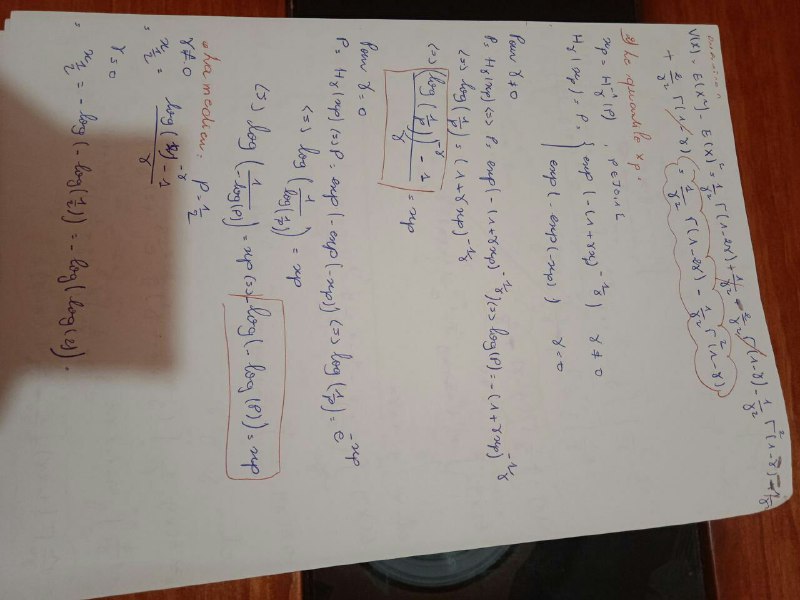 V(X) = E(X²) - E(X)² = 1/γ² Γ(1-2γ) + 1/γ² - 2/γ² Γ(1-γ) - 1/γ² Γ²(1-γ) - 1/γ²
+ 2/γ² Γ(1-γ) = 1/γ² Γ(1-2γ) - 1/γ² Γ²(1-γ)
g) le quantile xp :
xp = H⁻¹γ(P) , P ∈ ]0,1[
Hγ(xp) = P = { exp(-(1+γxp)^-1/γ) γ ≠ 0
exp(-exp(-xp)) γ = 0
Pour γ ≠ 0
P = Hγ(xp) <=> P = exp(-(1+γxp)^-1/γ) <=> log(P) = -(1+γxp)^-1/γ
<=> log(1/P) = (1+γxp)^-1/γ
<=> (log(1/P))^-γ - 1 / γ = xp
Pour γ = 0
P = Hγ(xp) <=> P = exp(-exp(-xp)) <=> log(1/P) = e^-xp
<=> log(1/log(1/P)) = xp
<=> log(1/-log(P)) = xp <=> -log(-log(P)) = xp
la median : P = 1/2
γ ≠ 0
x1/2 = log(2)^-γ - 1 / γ
γ = 0
x1/2 = -log(-log(1/2)) = -log(log(2)).